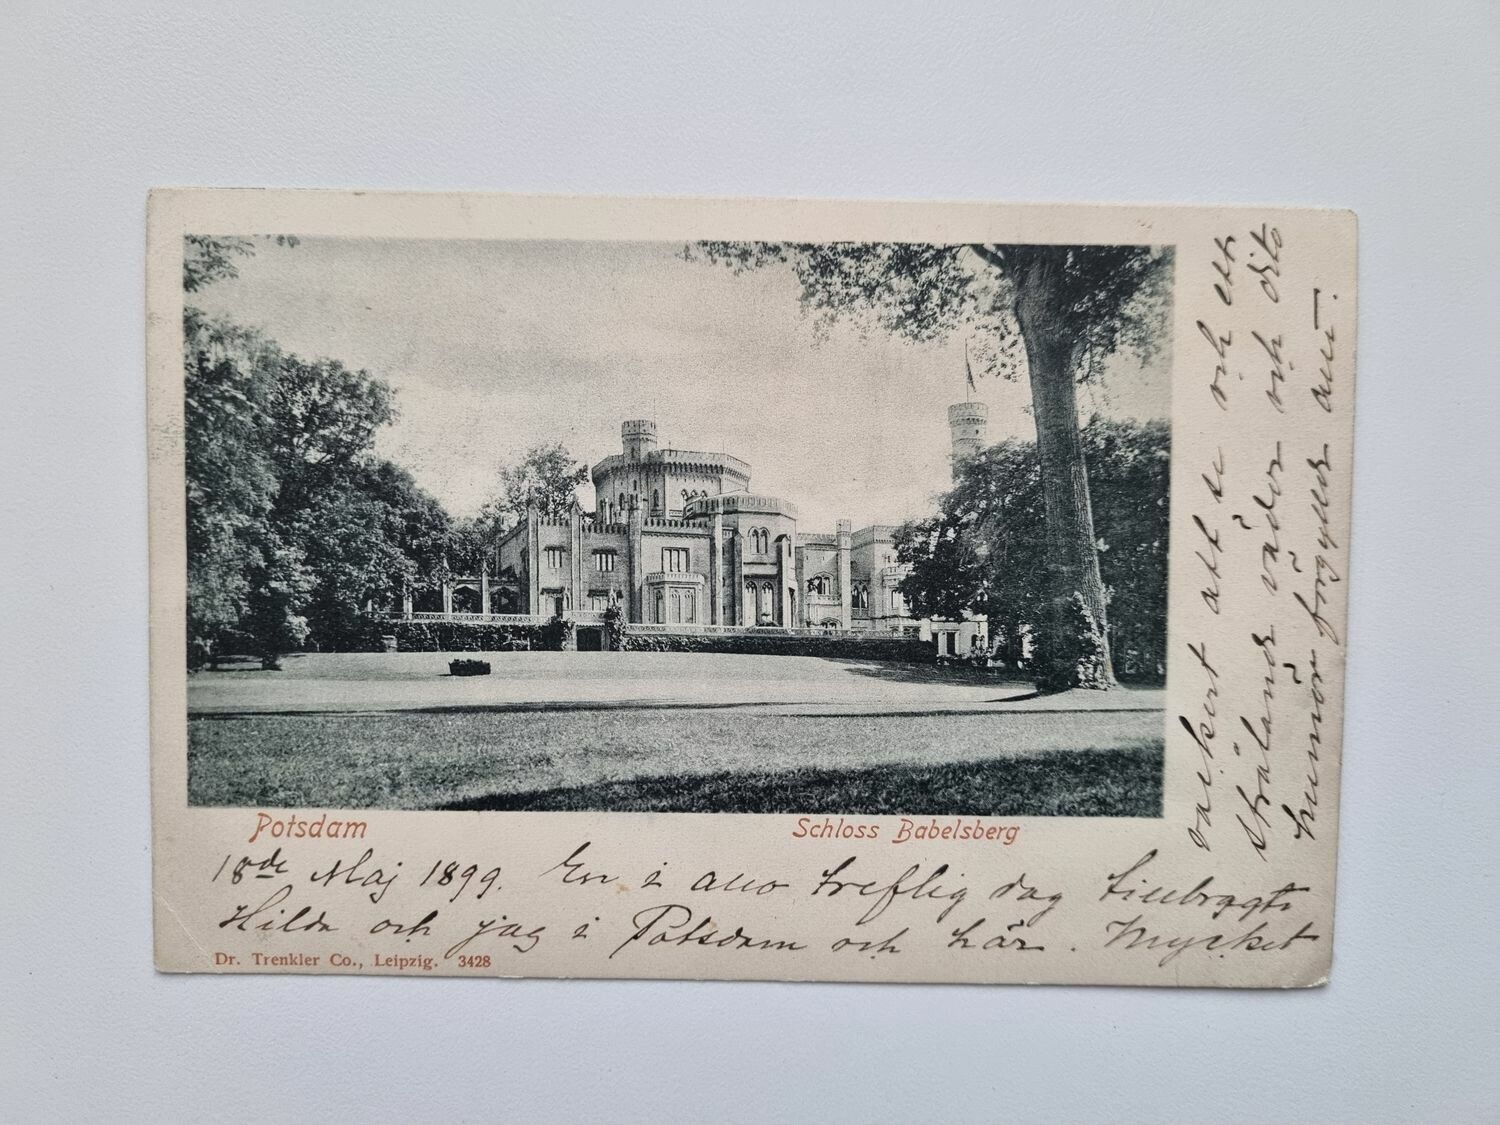 Potsdam
Schloss Babelsberg
18de Maj 1899. En i allo treflig dag tillbragte
Hilda och jag i Potsdam och här. Mycket
vackert att se och ett
strålande väder och dito
humör förgyller allt.
Dr. Trenkler Co., Leipzig. 3428